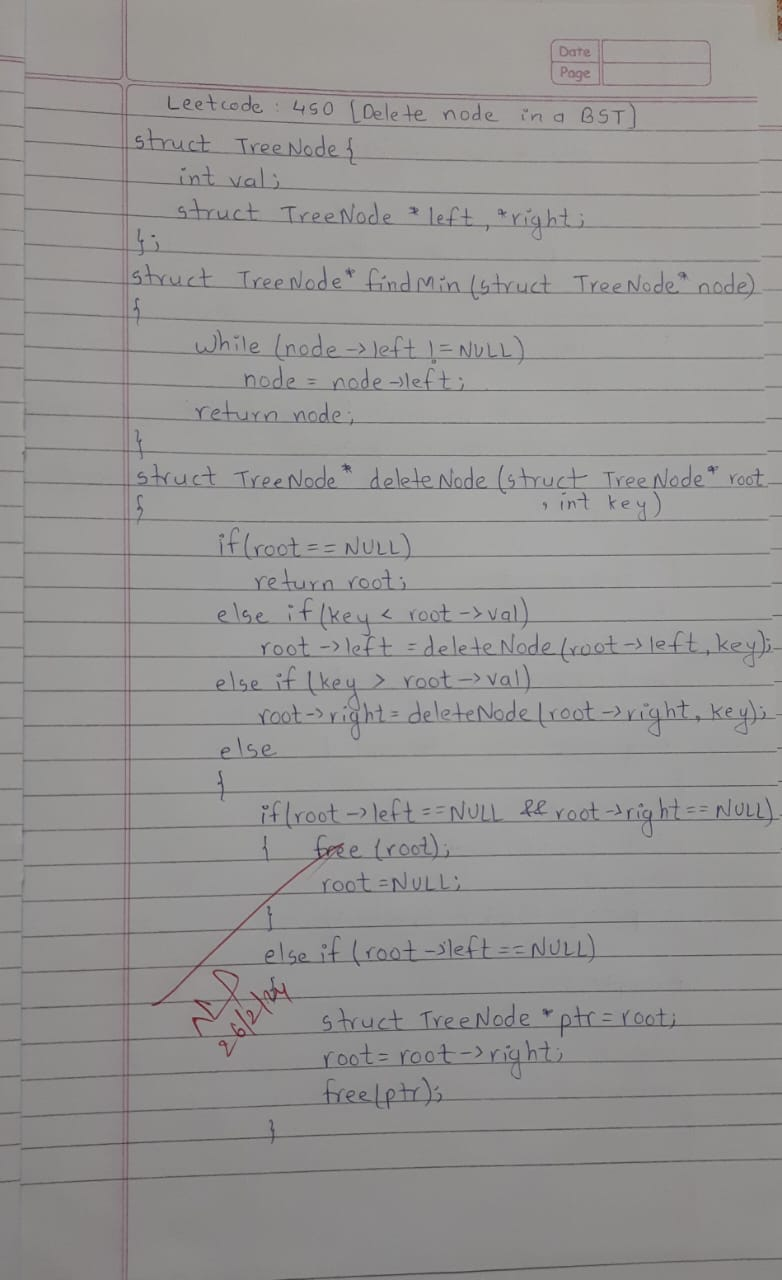 Date
Page
Leetcode : 450 [Delete node in a BST]
struct TreeNode {
int val;
struct TreeNode *left, *right;
};
struct TreeNode* findMin (struct TreeNode* node)
{
while (node->left != NULL)
node = node->left;
return node;
}
struct TreeNode* deleteNode (struct TreeNode* root
, int key)
{
if(root == NULL)
return root;
else if(key < root->val)
root->left = deleteNode(root->left, key);
else if (key > root->val)
root->right = deleteNode(root->right, key);
else
{
if(root->left == NULL && root->right == NULL)
{ free (root);
root = NULL;
}
else if (root->left == NULL)
26/2/24
struct TreeNode *ptr = root;
root = root->right;
free(ptr);
}